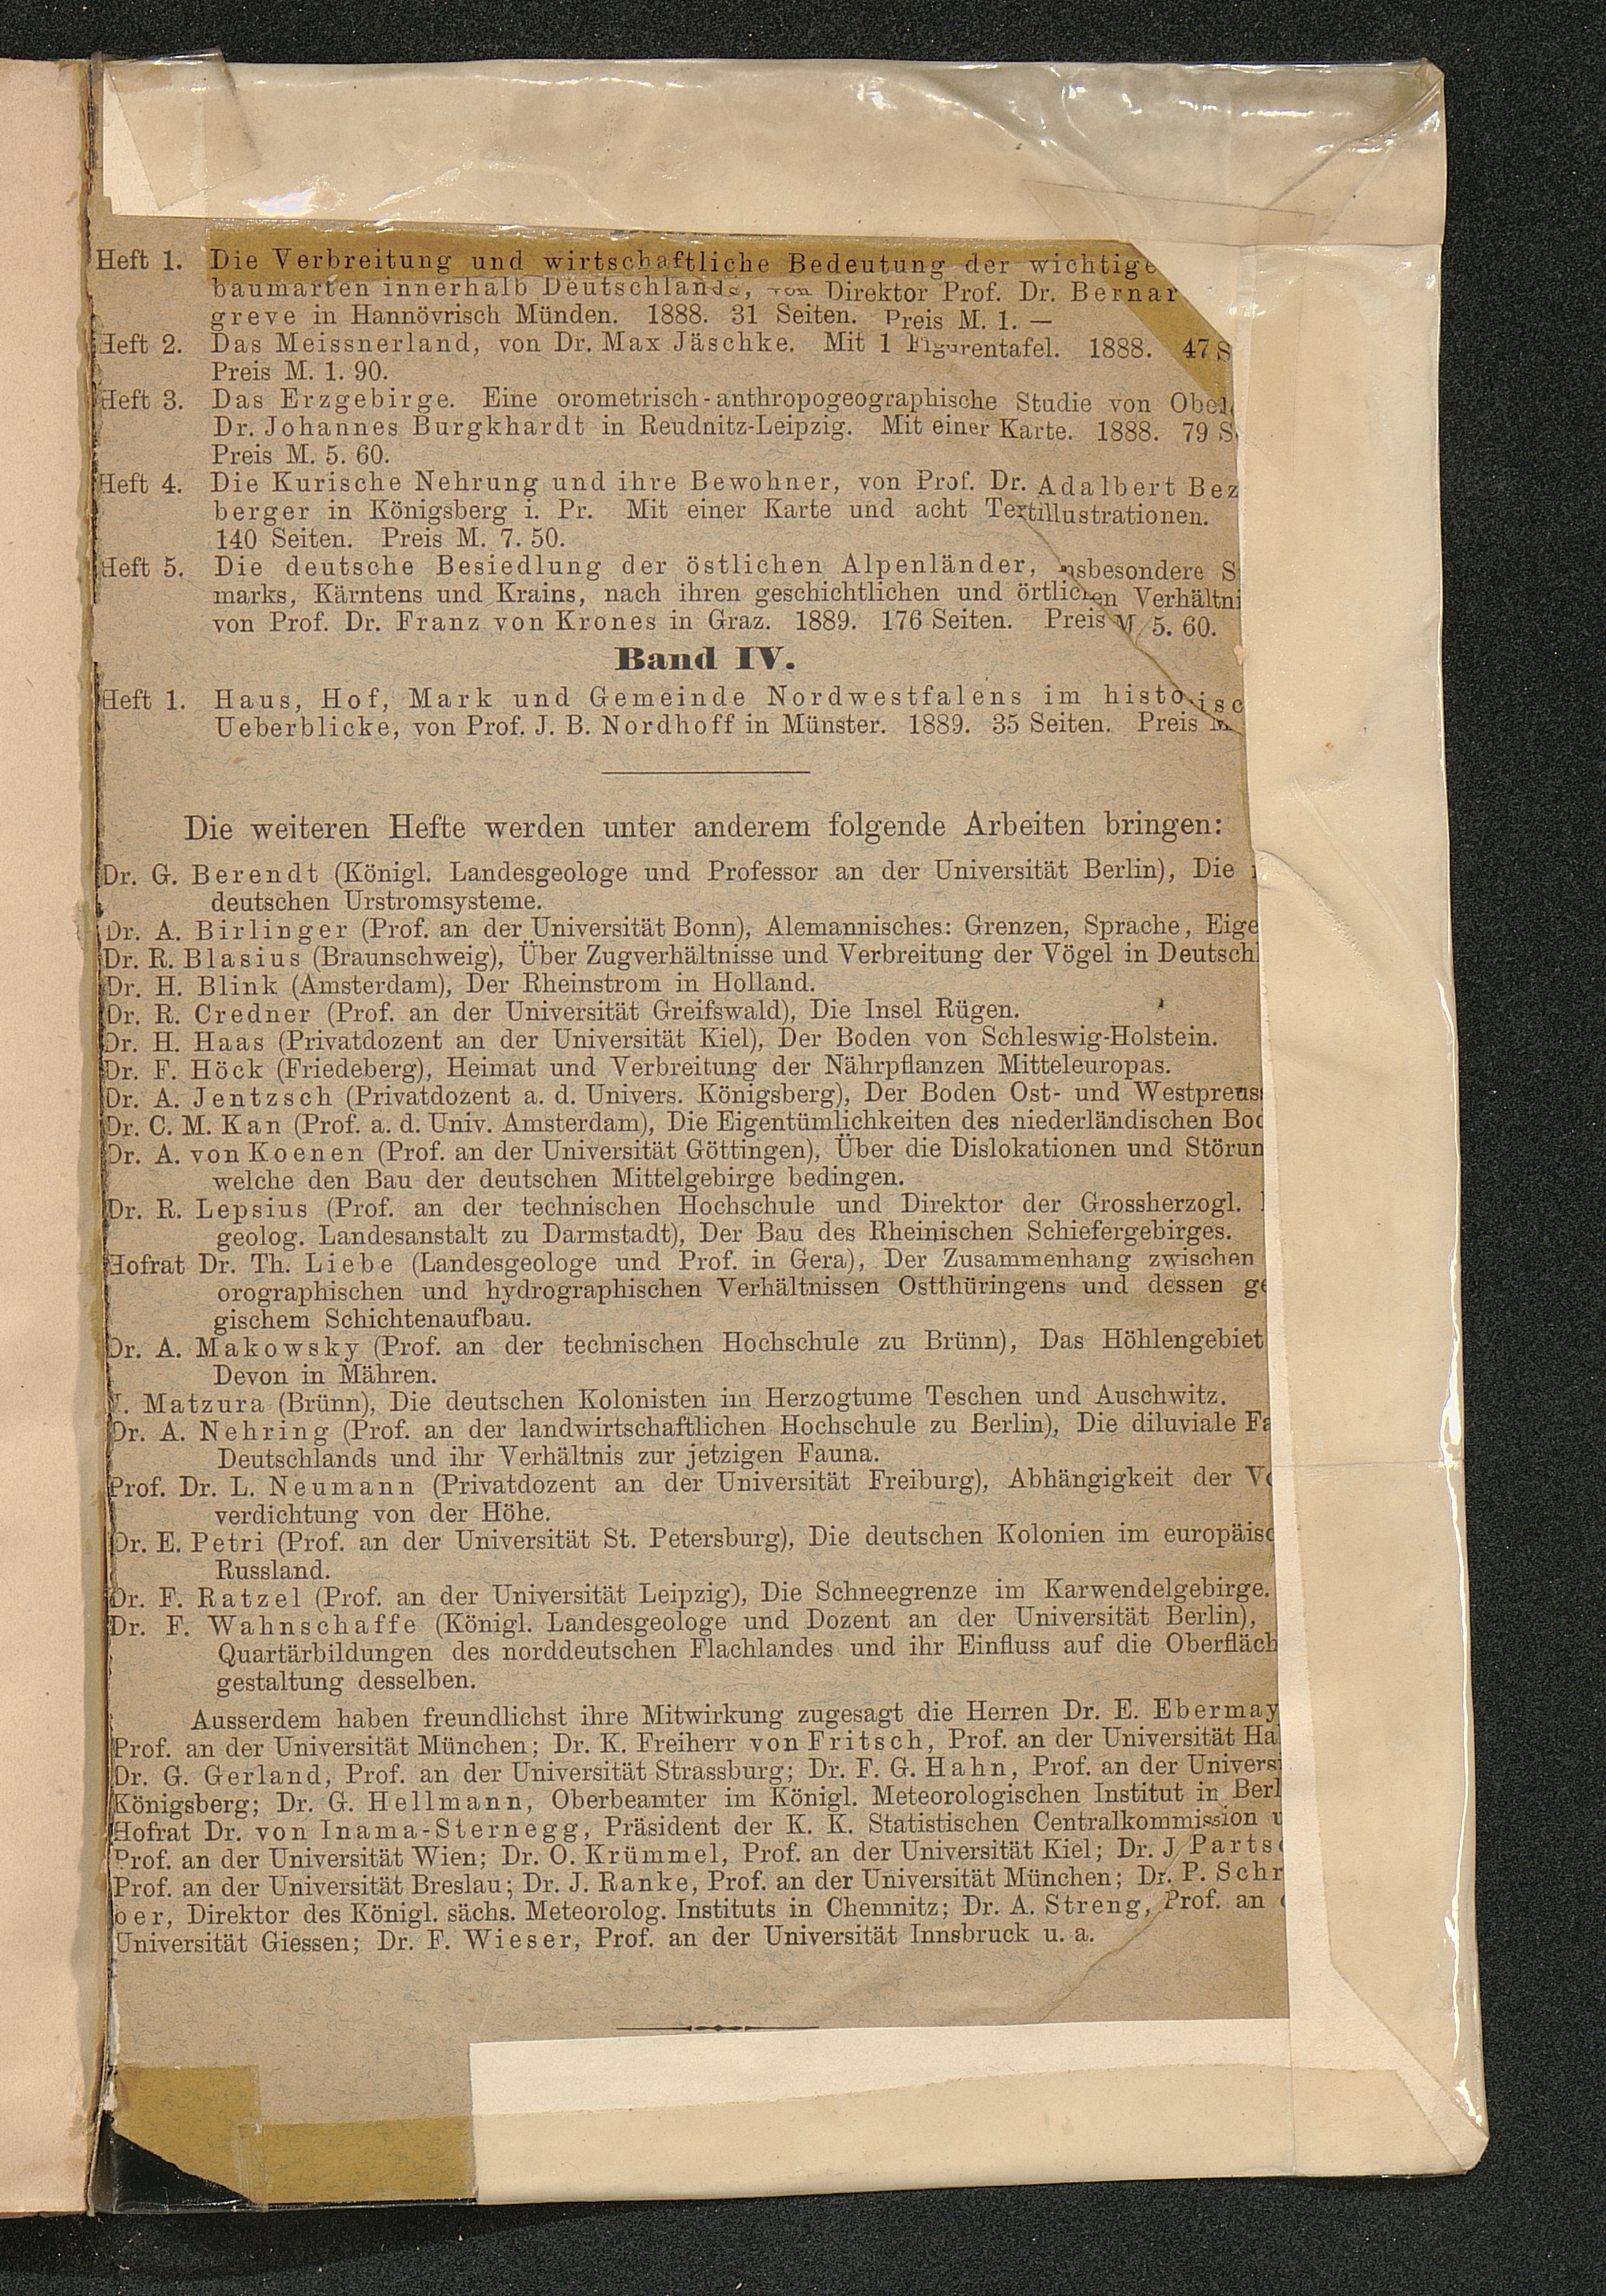 Heft 1. Die Verbreitung und wirtschaftliche Bedeutung der wichtige
baumarten innerhalb Deutschlands, von Direktor Prof. Dr. Bernar
greve in Hannövrisch Münden. 1888. 31 Seiten. Preis M. 1. —
Heft 2. Das Meissnerland, von Dr. Max Jäschke. Mit 1 Figurentafel. 1888. 47 S
Preis M. 1. 90.
Heft 3. Das Erzgebirge. Eine orometrisch-anthropogeographische Studie von Obel
Dr. Johannes Burgkhardt in Reudnitz-Leipzig. Mit einer Karte. 1888. 79 S
Preis M. 5. 60.
Heft 4. Die Kurische Nehrung und ihre Bewohner, von Prof. Dr. Adalbert Bez
berger in Königsberg i. Pr. Mit einer Karte und acht Textillustrationen.
140 Seiten. Preis M. 7. 50.
Heft 5. Die deutsche Besiedlung der östlichen Alpenländer, insbesondere S
marks, Kärntens und Krains, nach ihren geschichtlichen und örtlichen Verhältni
von Prof. Dr. Franz von Krones in Graz. 1889. 176 Seiten. Preis M. 5. 60.
Band IV.
Heft 1. Haus, Hof, Mark und Gemeinde Nordwestfalens im historisc
Ueberblicke, von Prof. J. B. Nordhoff in Münster. 1889. 35 Seiten. Preis M.
Die weiteren Hefte werden unter anderem folgende Arbeiten bringen:
Dr. G. Berendt (Königl. Landesgeologe und Professor an der Universität Berlin), Die
deutschen Urstromsysteme.
Dr. A. Birlinger (Prof. an der Universität Bonn), Alemannisches: Grenzen, Sprache, Eige
Dr. R. Blasius (Braunschweig), Über Zugverhältnisse und Verbreitung der Vögel in Deutschl
Dr. H. Blink (Amsterdam), Der Rheinstrom in Holland.
Dr. R. Credner (Prof. an der Universität Greifswald), Die Insel Rügen.
Dr. H. Haas (Privatdozent an der Universität Kiel), Der Boden von Schleswig-Holstein.
Dr. F. Höck (Friedeberg), Heimat und Verbreitung der Nährpflanzen Mitteleuropas.
Dr. A. Jentzsch (Privatdozent a. d. Univers. Königsberg), Der Boden Ost- und Westpreuss
Dr. C. M. Kan (Prof. a. d. Univ. Amsterdam), Die Eigentümlichkeiten des niederländischen Bod
Dr. A. von Koenen (Prof. an der Universität Göttingen), Über die Dislokationen und Störun
welche den Bau der deutschen Mittelgebirge bedingen.
Dr. R. Lepsius (Prof. an der technischen Hochschule und Direktor der Grossherzogl.
geolog. Landesanstalt zu Darmstadt), Der Bau des Rheinischen Schiefergebirges.
Hofrat Dr. Th. Liebe (Landesgeologe und Prof. in Gera), Der Zusammenhang zwischen
orographischen und hydrographischen Verhältnissen Ostthüringens und dessen ge
gischem Schichtenaufbau.
Dr. A. Makowsky (Prof. an der technischen Hochschule zu Brünn), Das Höhlengebiet
Devon in Mähren.
Matzura (Brünn), Die deutschen Kolonisten im Herzogtume Teschen und Auschwitz.
Dr. A. Nehring (Prof. an der landwirtschaftlichen Hochschule zu Berlin), Die diluviale Fa
Deutschlands und ihr Verhältnis zur jetzigen Fauna.
Prof. Dr. L. Neumann (Privatdozent an der Universität Freiburg), Abhängigkeit der Vo
verdichtung von der Höhe.
Dr. E. Petri (Prof. an der Universität St. Petersburg), Die deutschen Kolonien im europäisc
Russland.
Dr. F. Ratzel (Prof. an der Universität Leipzig), Die Schneegrenze im Karwendelgebirge.
Dr. F. Wahnschaffe (Königl. Landesgeologe und Dozent an der Universität Berlin),
Quartärbildungen des norddeutschen Flachlandes und ihr Einfluss auf die Oberfläch
gestaltung desselben.
Ausserdem haben freundlichst ihre Mitwirkung zugesagt die Herren Dr. E. Ebermay
Prof. an der Universität München; Dr. K. Freiherr von Fritsch, Prof. an der Universität Hal
Dr. G. Gerland, Prof. an der Universität Strassburg; Dr. F. G. Hahn, Prof. an der Universi
Königsberg; Dr. G. Hellmann, Oberbeamter im Königl. Meteorologischen Institut in Berl
Hofrat Dr. von Inama-Sternegg, Präsident der K. K. Statistischen Centralkommission u
Prof. an der Universität Wien; Dr. O. Krümmel, Prof. an der Universität Kiel; Dr. J. Partsc
Prof. an der Universität Breslau; Dr. J. Ranke, Prof. an der Universität München; Dr. P. Schr
ber, Direktor des Königl. sächs. Meteorolog. Instituts in Chemnitz; Dr. A. Streng, Prof. an
Universität Giessen; Dr. F. Wieser, Prof. an der Universität Innsbruck u. a.